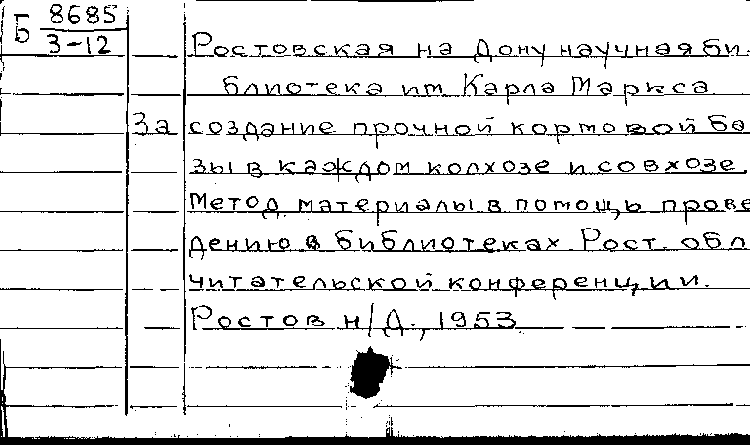 Б 8685
3-12
Ростовская на Дону научная би-
блиотека им. Карла Маркса.
За создание прочной кормовой ба
зы в каждом колхозе и совхозе.
Метод. материалы в помощь прове
дению в библиотеках Рост. обл
читательской конференции.
Ростов н/Д., 1953